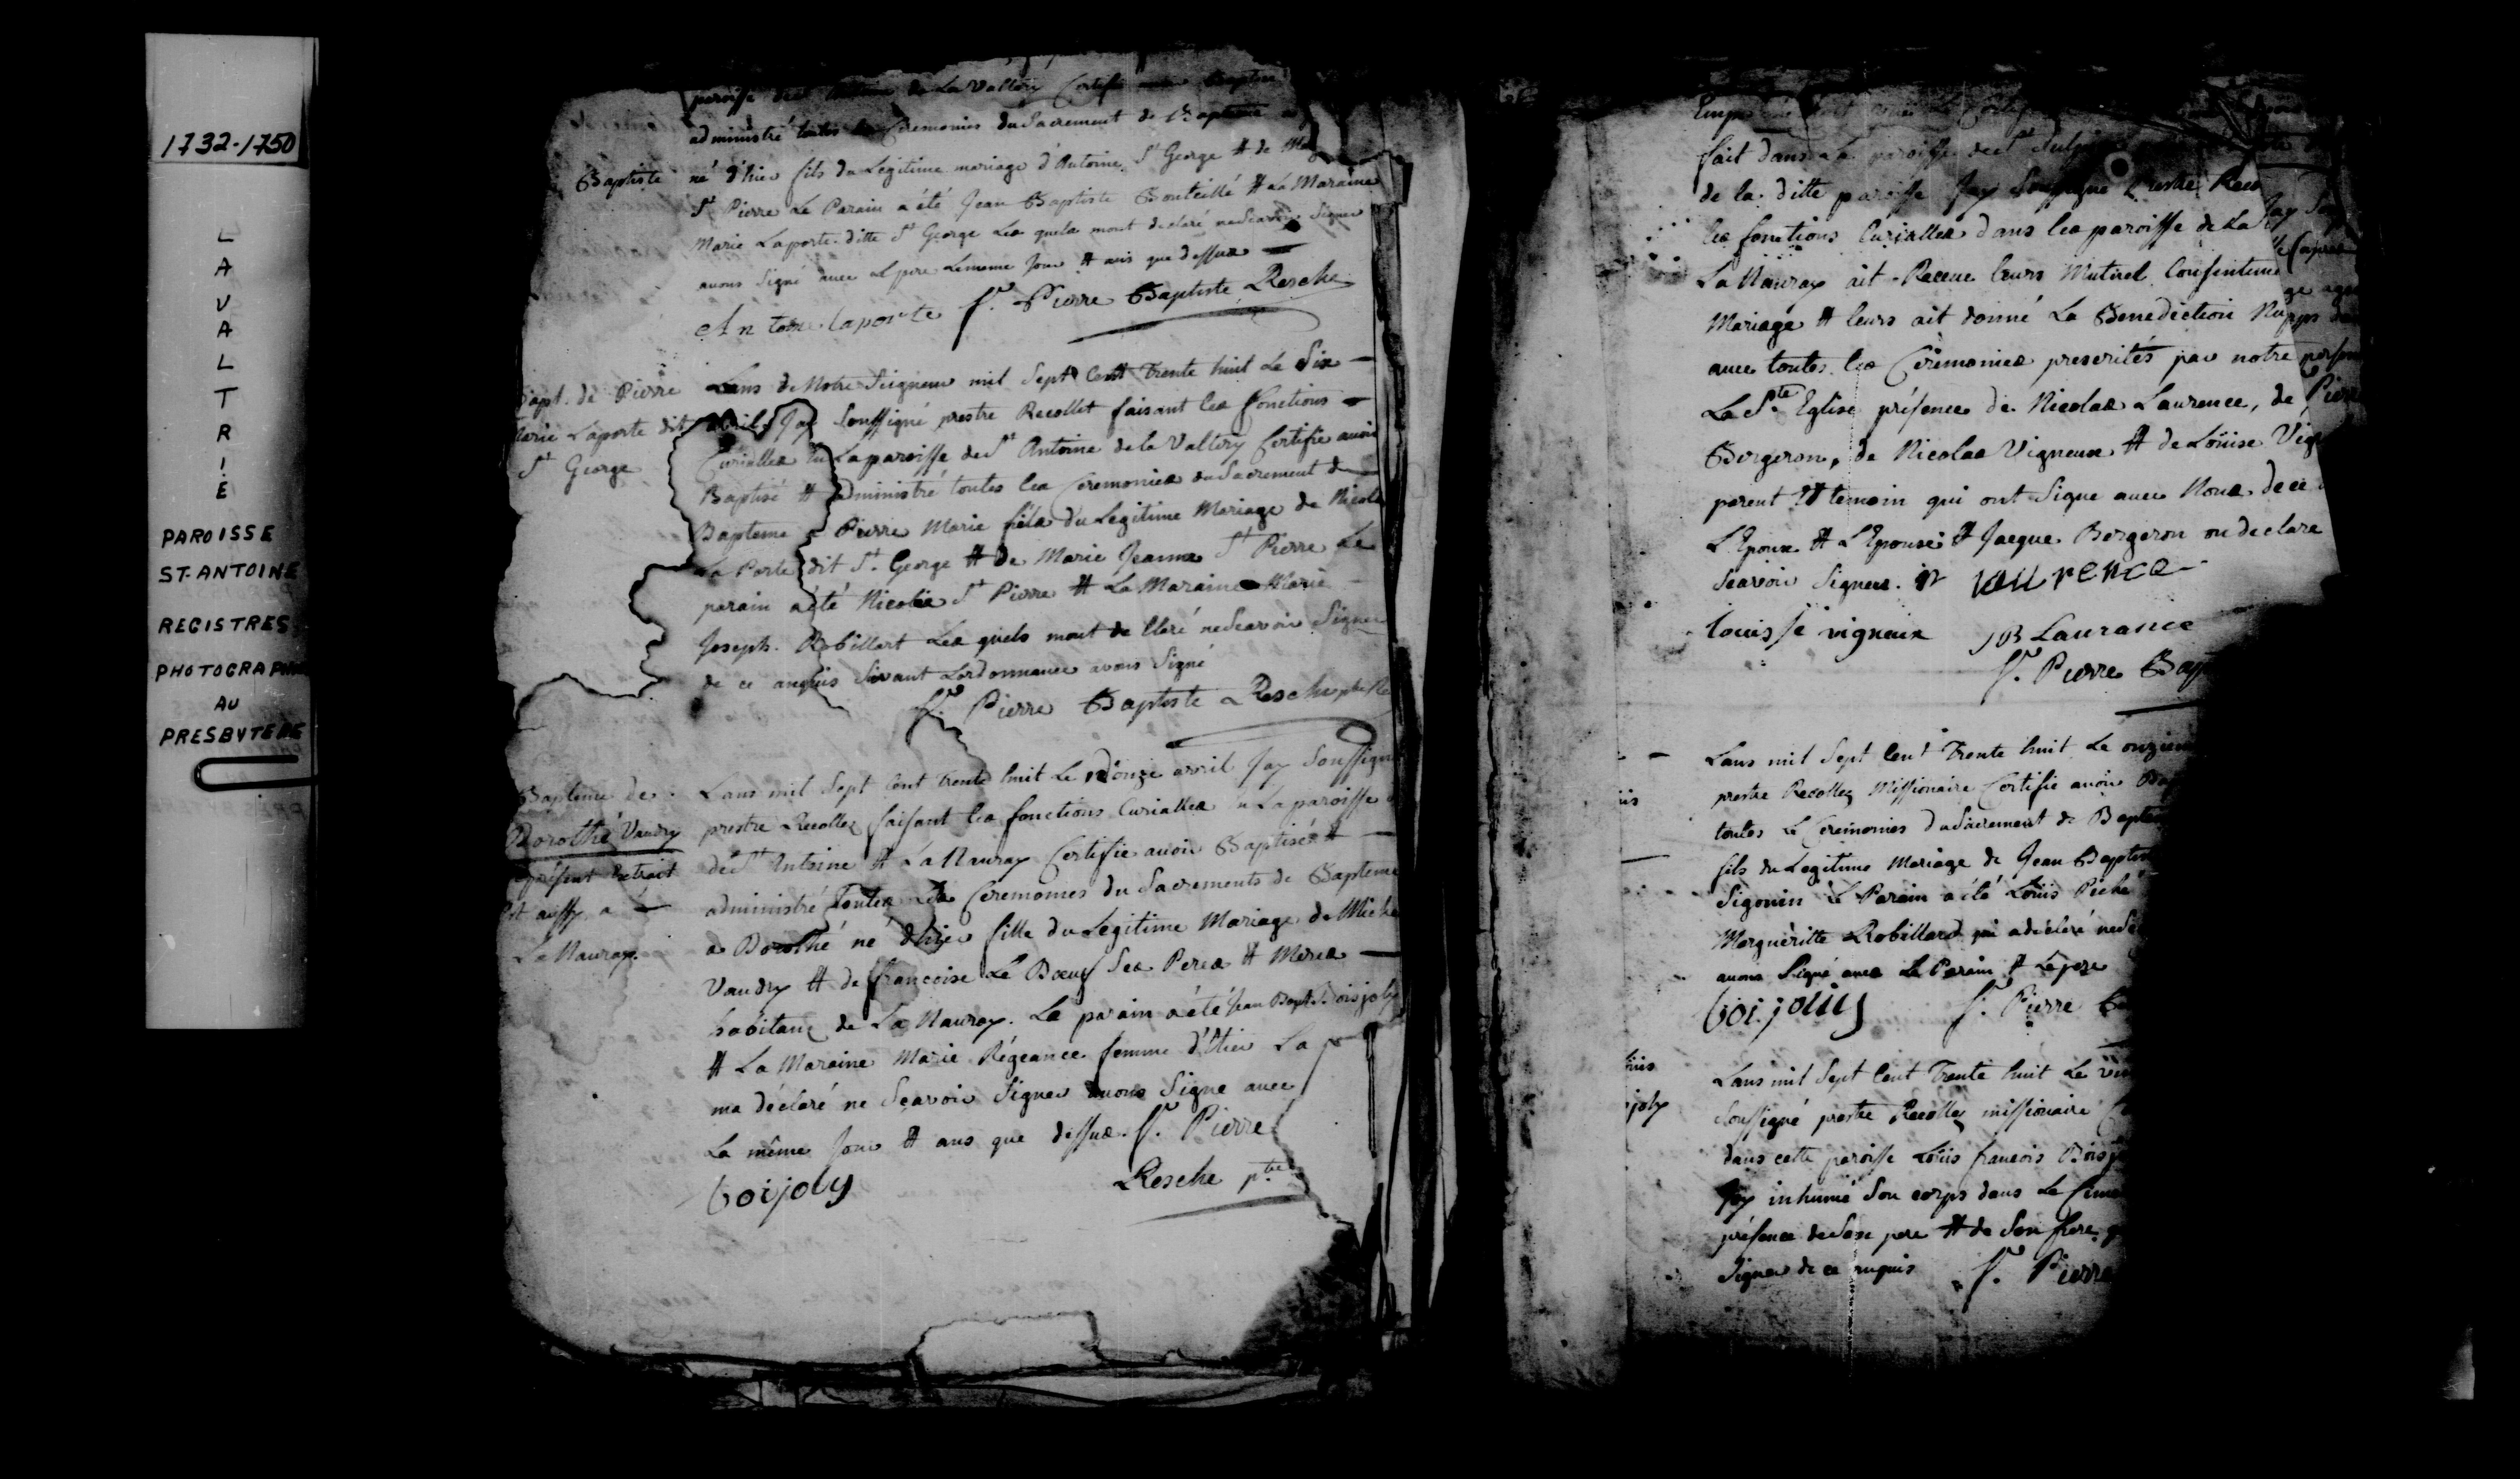 1732-1750
LAVALTRIE
PAROISSE
ST-ANTOINE
REGISTRES
PHOTOGRAPHIÉS
AU
PRESBYTERE
paroisse de La Valtery Certifie
administré toutes les Ceremonies du Sacrement de Bapteme a
Baptiste
né d'hier fils du Legitime mariage d'Antoine St George et de
St Pierre Le Parain a été Jean Baptiste Bouteillé et La Maraine
Marie Laporte ditte St George Les quels mont declaré ne Scavoir Signer
avons Signé avec Le pere Le meme Jour et ans que dessus
An toine laporte f. Pierre Baptiste Resche
Bapt. de Pierre
Marie Laporte dit
St George
Lans de Notre Seigneur mil Sept Cent Trente huit Le Six
avril Jay Soussigné prestre Recollet faisant les fonctions
Curialles en La paroisse de St Antoine de la Valtery Certifie avoir
Baptisé et administré toutes les Ceremonies du Sacrement de
Bapteme a Pierre Marie fils du Legitime Mariage de Nicolas
La Porte dit St. George et de Marie Jeanne St Pierre Le
parain a été Nicolas St Pierre et La Maraine Marie
Joseph Robillart Les quels mont declaré ne Scavoir Signer
de ce anquis Sivant Lordonnance avons Signé
f. Pierre Baptiste Resche
Bapteme de
Dorothé Vaudry
présent Extrait
est aussy a
La Nauray.
Lans mil Sept Cent Trente huit Le douze avril Jay Soussigné
prestre Recollez faisant les fonctions Curialles en La paroisse
de St Antoine et La Nauray Certifie avoir Baptisée et
administré Toutes les Ceremonies du Sacrements de Bapteme
a Dorothé né d'hier fille du Legitime Mariage de Michel
Vaudry et de francoise Le Boeuf Ses Peres et Meres
habitans de La Nauray. Le parain a été Jean Bapt. Boisjoly
et La Maraine Marie Régeance femme d'Utier La
ma déclaré ne Scavoir Signer avons Signe avec
La même Jour et ans que dessus. f. Pierre
boijoly Resche ptre
fait dans La paroisse de St Sulpice
de la ditte paroisse Jay Soussigne Prestre Reco
les fonctions Curialles dans les paroisse de La
La Nauray ait Receue leurs Mutuel Consenteme
Mariage et leurs ait donné La Benediction Nup
avec toutes les Cérémonies prescrités par notre
La Ste Eglise présence de Nicolas Laurence, de Pierre
Bergeron, de Nicolas Vigneux et de Loüise Vign
parent et temoin qui ont Signe avec Nous de ce
L'Epoux et L'Epouse et Jacque Bergeron on declare
Scavoir Signer. laurence
louisse vigneux JB Laurance
f. Pierre Bap
Lans mil Sept Cent Trente huit Le onzieme
prestre Recollez Missionaire Certifie avoir Bap
toutes Le Ceremonies du Sacrement de Bapte
fils du Legitime Mariage de Jean Baptis
Sigouin Le Parain a été Loüis Piché
Morgueritte Robillard qui a déclaré ne Sc
avons Signé avec Le Parain et Le pere
boijouly f. Pierre B
joly
Lans mil Sept Cent Trente huit Le vin
Soussigné prestre Recollez missionaire C
dans cette paroisse Loüis francois Boisj
Jay inhumé Son corps dans Le Cime
présence de Son pere et de Son frere q
Signer de ce enquis f. Pierre